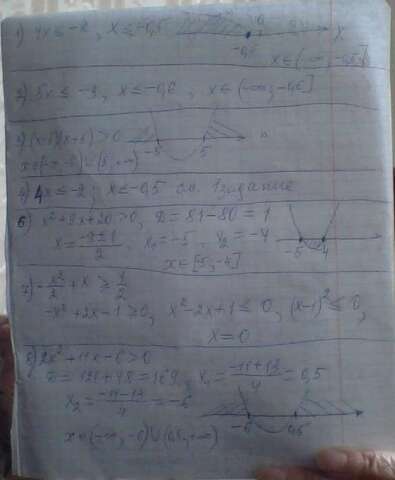 1) 4x ≤ -2, x ≤ -0,5
-0,5 x
x ∈ (-∞, -0,5]
2) 5x ≤ -3, x ≤ -0,6, x ∈ (-∞, -0,6]
3) (x-5)(x+5) > 0
-5 5
x ∈ (-∞, -5) ∪ (5, +∞)
4) 4x ≤ -2; x ≤ -0,5 см. 1 задание
6) x² + 9x + 20 > 0, D = 81 - 80 = 1
x = (-9 ± 1)/2, x₁ = -5, x₂ = -4
-5 -4
x ∈ [-5; -4]
7) -x²/2 + x ≥ 1/2
-x² + 2x - 1 ≥ 0, x² - 2x + 1 ≤ 0, (x-1)² ≤ 0,
x = 0
8) 2x² + 11x - 6 > 0
D = 121 + 48 = 169, x₁ = (-11 + 13)/4 = 0,5
x₂ = (-11 - 13)/4 = -6
-6 0,5
x ∈ (-∞, -6) ∪ (0,5, +∞)